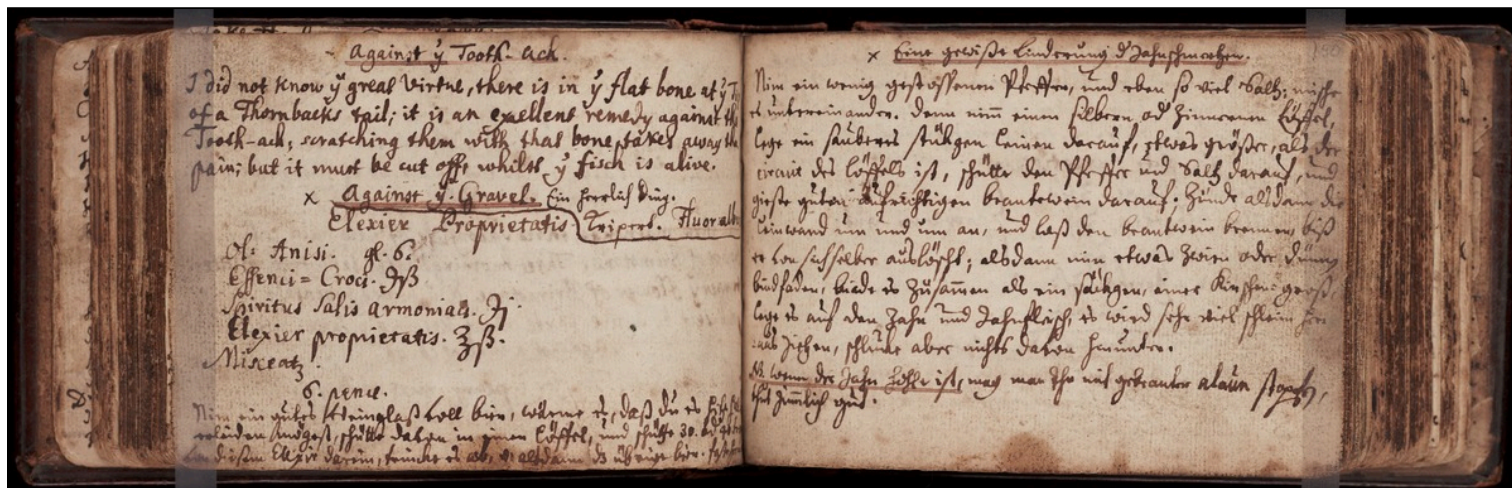 Against ÿ Tooth-ach.
I did not know ÿ great Virtue, there is in ÿ flat bone at ÿ
of a Thornbacks tail; it is an exellent remedy against the
Tooth-ach, scratching them with that bone, takes away the
pain; but it must be cut off, whilst ÿ fisch is alive.
x Against ÿ Gravel. Ein herrlich Ding.
Elexier Proprietatis Fluor alb
Ol: Anisi. gt. 6.
Essenci= Croci. ʒß
Spiritus Salis armoniaci. ʒj
Elexier proprietatis. ℥ß.
Misceatz.
6. pence.
Nim ein gutes Weinglaß voll bier, wärme es, daß du es
erleiden mögest, schütte davon in einen Löffel, und schütte 30.
von diesem Elexir darein, trincke es alsdann bier.
x Eine gewiße Linderung d Zahnschmertzen.
Nim ein wenig gestossenen Pfeffer, und eben so viel Saltz; mische
es untereinander. Denn nimm einen silbern od Zinnernen Löffel,
lege ein sauberes stükgen Leinen darauf, etwas größer, als der
des Löffels ist, schütte den Pfeffer und Saltz darauf, und
gieße guten aufrichtigen brantewein darauf; Zünde alsdann die
Leinwand um und um an, und laß den brantwein brennen, biß
er von sich selber auslöscht; alsdann nim etwas Zwirn oder dünn
bindfaden, binde es Zusammen als ein säkgen, einer Kirschen groß,
lege es auf den Zahn und Zahnfleisch, es wird sehr viel schleim her
aus Ziehen, schlucke aber nichts davon hinunter.
NB wenn der Zahn hohl ist, mag man Ihn mit gebranten alaun stopfen,
thut Zimmlich gut.